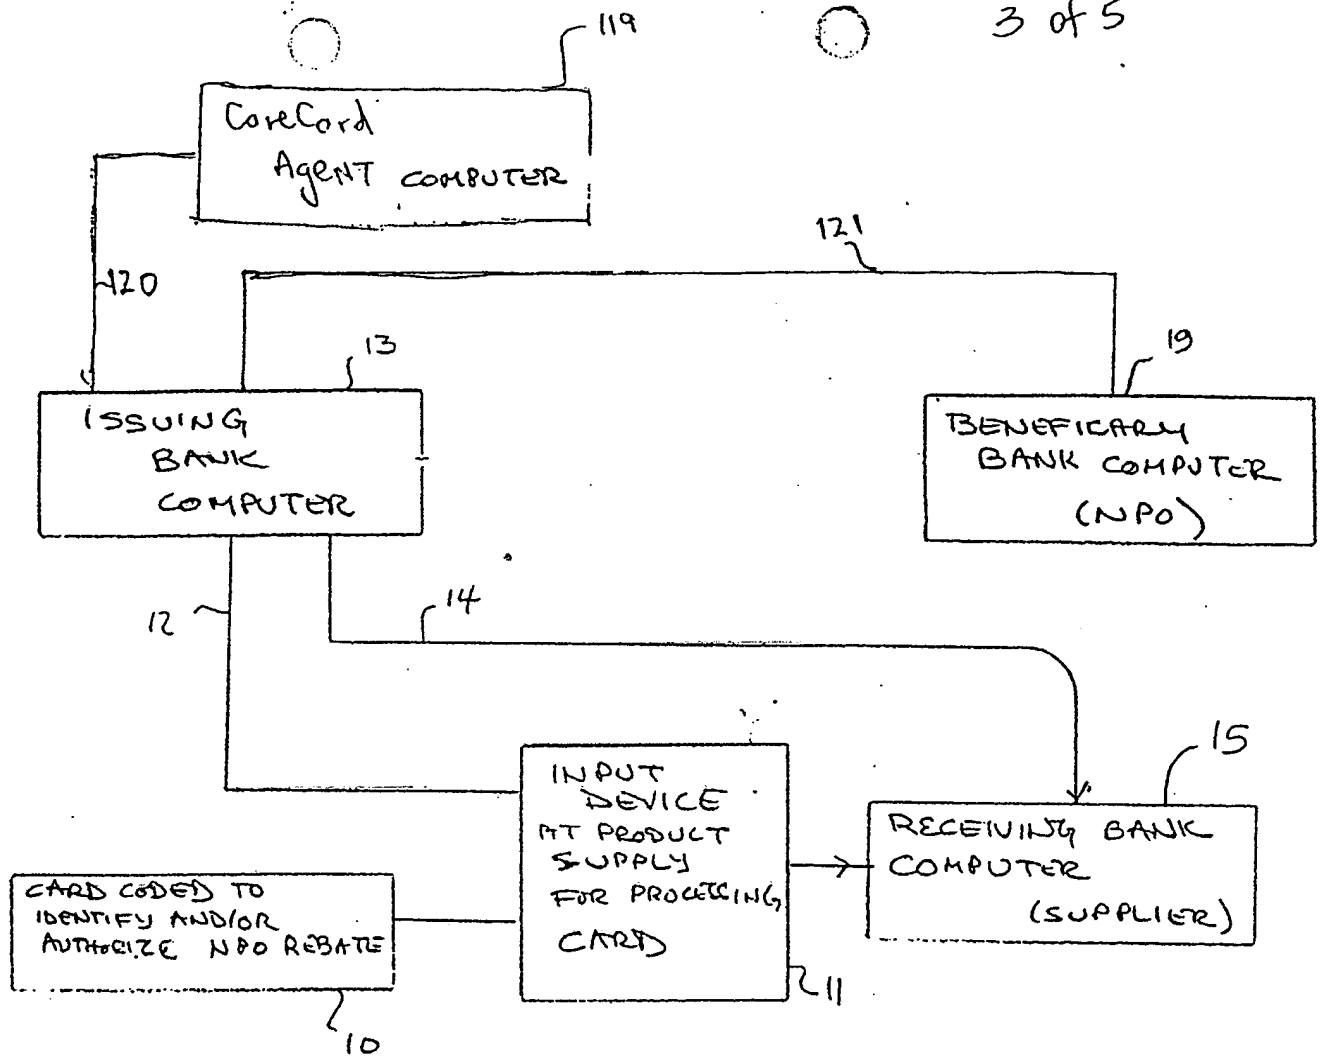 3 of 5
119
CareCard
Agent COMPUTER
120
121
13
19
ISSUING
BANK
COMPUTER
BENEFICARY
BANK COMPUTER
(NPO)
12
14
15
INPUT
DEVICE
AT PRODUCT
SUPPLY
FOR PROCESSING
CARD
RECEIVING BANK
COMPUTER
(SUPPLIER)
CARD CODED TO
IDENTIFY AND/OR
AUTHORIZE NPO REBATE
11
10